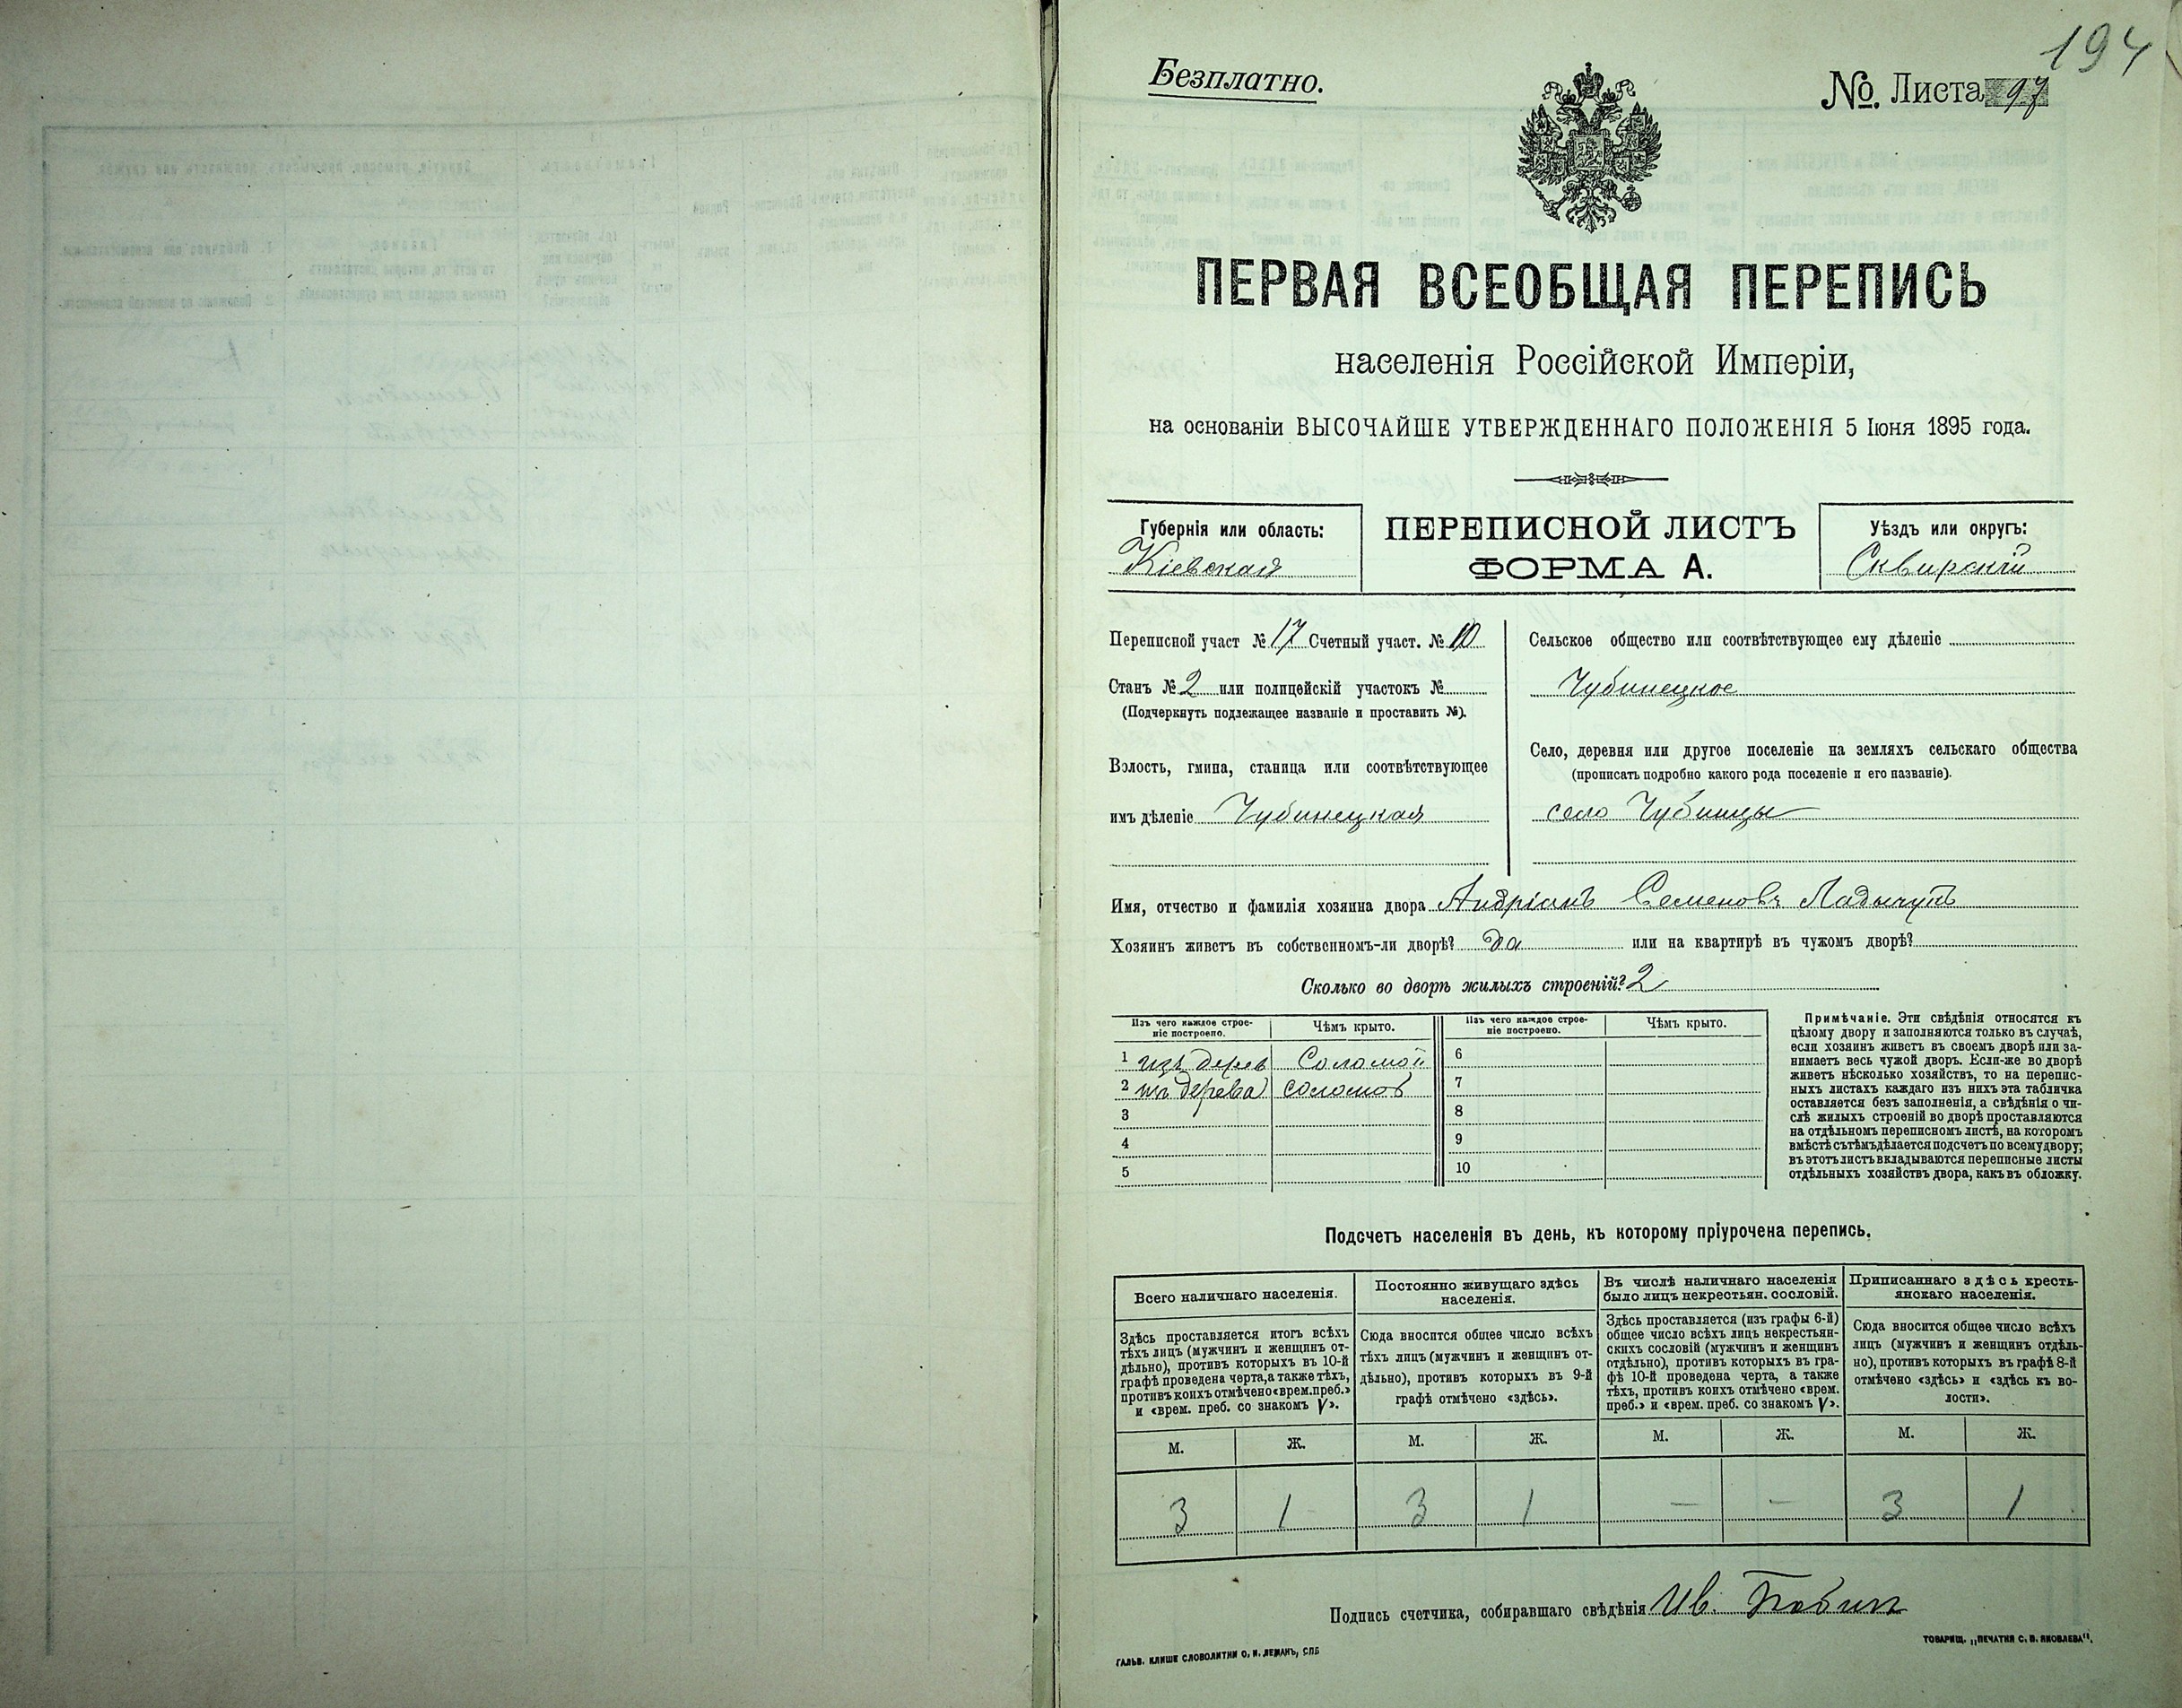 194
Безплатно.
№. Листа 97
ПЕРВАЯ ВСЕОБЩАЯ ПЕРЕПИСЬ
населенія Россійской Имперіи,
на основаніи ВЫСОЧАЙШЕ УТВЕРЖДЕННАГО ПОЛОЖЕНІЯ 5 Іюня 1895 года.
Губернія или область:
Кіевская
ПЕРЕПИСНОЙ ЛИСТЪ
ФОРМА А.
Уѣздъ или округъ:
Сквирскій
Переписной участ № 17 Счетный участ. № 10
Станъ № 2 или полицейскій участокъ №
(Подчеркнуть подлежащее названіе и проставить №).
Волость, гмина, станица или соотвѣтствующее
имъ дѣленіе Чубинецкая
Сельское общество или соотвѣтствующее ему дѣленіе
Чубинецкое
Село, деревня или другое поселеніе на земляхъ сельскаго общества
(прописать подробно какого рода поселеніе и его названіе).
село Чубинцы
Имя, отчество и фамилія хозяина двора Андріанъ Семеновъ
Хозяинъ живетъ въ собственномъ-ли дворѣ? да или на квартирѣ въ чужомъ дворѣ?
Сколько во дворѣ жилыхъ строеній? 2
Изъ чего каждое строе-
ніе построено.
Чѣмъ крыто.
Изъ чего каждое строе-
ніе построено.
Чѣмъ крыто.
1 изъ дерев Соломой 6
2 изъ дерева соломой 7
3 8
4 9
5 10
Примѣчаніе. Эти свѣдѣнія относятся къ
цѣлому двору и заполняются только въ случаѣ,
если хозяинъ живетъ въ своемъ дворѣ или за-
нимаетъ весь чужой дворъ. Если-же во дворѣ
живетъ нѣсколько хозяйствъ, то на перепис-
ныхъ листахъ каждаго изъ нихъ эта табличка
оставляется безъ заполненія, а свѣдѣнія о чи-
слѣ жилыхъ строеній во дворѣ проставляются
на отдѣльномъ переписномъ листѣ, на которомъ
вмѣстѣ съ тѣмъ дѣлается подсчетъ по всему двору;
въ этотъ листъ вкладываются переписные листы
отдѣльныхъ хозяйствъ двора, какъ въ обложку.
Подсчетъ населенія въ день, къ которому пріурочена перепись.
Всего наличнаго населенія.
Здѣсь проставляется итогъ всѣхъ
тѣхъ лицъ (мужчинъ и женщинъ от-
дѣльно), противъ которыхъ въ 10-й
графѣ проведена черта, а также тѣхъ,
противъ коихъ отмѣчено «врем. преб.»
и «врем. преб. со знакомъ V».
Постоянно живущаго здѣсь
населенія.
Сюда вносится общее число всѣхъ
тѣхъ лицъ (мужчинъ и женщинъ от-
дѣльно), противъ которыхъ въ 9-й
графѣ отмѣчено «здѣсь».
Въ числѣ наличнаго населенія
было лицъ некрестьян. сословій.
Здѣсь проставляется (изъ графы 6-й)
общее число всѣхъ лицъ некрестьян-
скихъ сословій (мужчинъ и женщинъ
отдѣльно), противъ которыхъ въ гра-
фѣ 10-й проведена черта, а также
тѣхъ, противъ коихъ отмѣчено «врем.
преб.» и «врем. преб. со знакомъ V».
Приписаннаго здѣсь кресть-
янскаго населенія.
Сюда вносится общее число всѣхъ
лицъ (мужчинъ и женщинъ отдѣль-
но), противъ которыхъ въ графѣ 8-й
отмѣчено «здѣсь» и «здѣсь къ во-
лости».
М. Ж. М. Ж. М. Ж. М. Ж.
3 1 3 1 — — 3 1
Подпись счетчика, собиравшаго свѣдѣнія Ив.
ГАЛЬВ. КЛИШЕ СЛОВОЛИТНИ О. И. ЛЕМАНЪ, СПБ
ТОВАРИЩ. „ПЕЧАТНЯ С. П. ЯКОВЛЕВА".